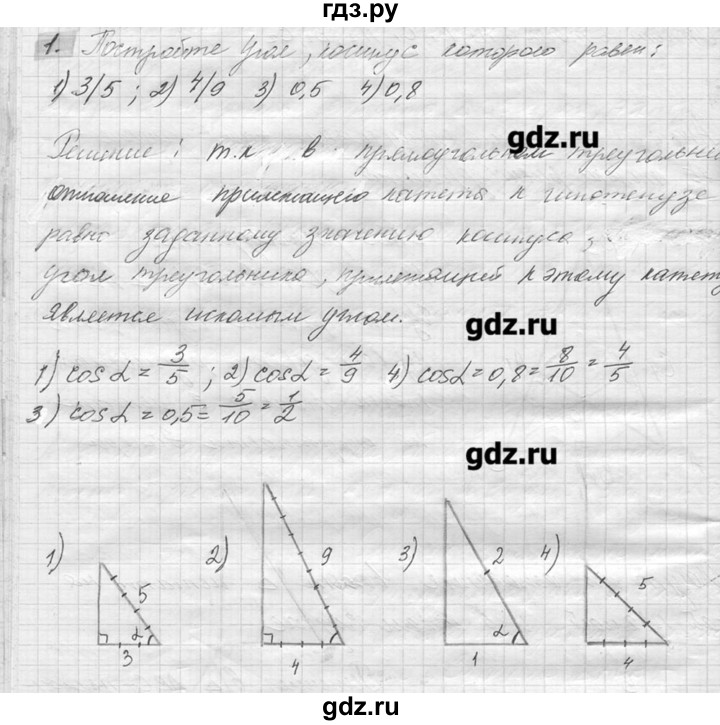 гдз.ру
1. Постройте угол, косинус которого равен:
1) 3/5 ; 2) 4/9 3) 0,5 4) 0,8
gdz.ru
Решение: т.к в прямоугольном треугольни
отношение прилежащего катета к гипотенузе
равно заданному значению косинуса,
угол треугольника, прилежащей к этому катету
является искомым углом.
gdz.ru
1) cos α = 3/5 ; 2) cos α = 4/9 4) cos α = 0,8 = 8/10 = 4/5
3) cos α = 0,5 = 5/10 = 1/2
gdz.ru
1) 2) 3) 4)
5 9 2 5
α α
3 4 1 4
gdz.ru